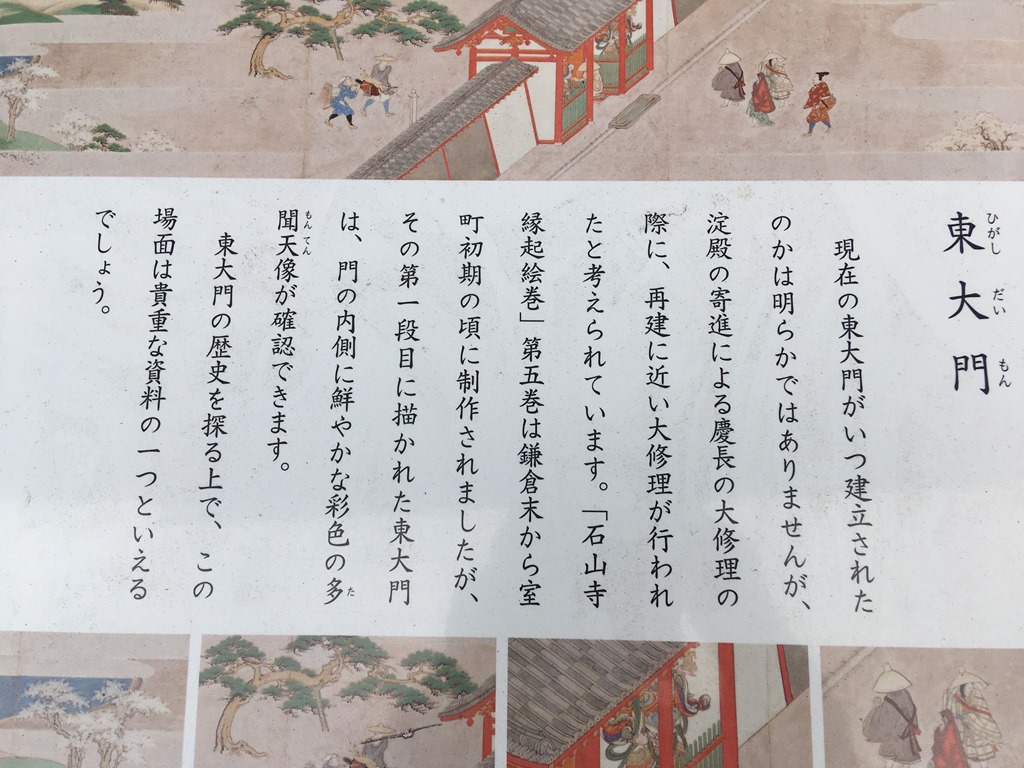 東大門
ひがしだいもん
現在の東大門がいつ建立された
のかは明らかではありませんが、
淀殿の寄進による慶長の大修理の
際に、再建に近い大修理が行われ
たと考えられています。「石山寺
縁起絵巻」第五巻は鎌倉末から室
町初期の頃に制作されましたが、
その第一段目に描かれた東大門
は、門の内側に鮮やかな彩色の多
聞天像が確認できます。
たもんてん
東大門の歴史を探る上で、この
場面は貴重な資料の一つといえる
でしょう。